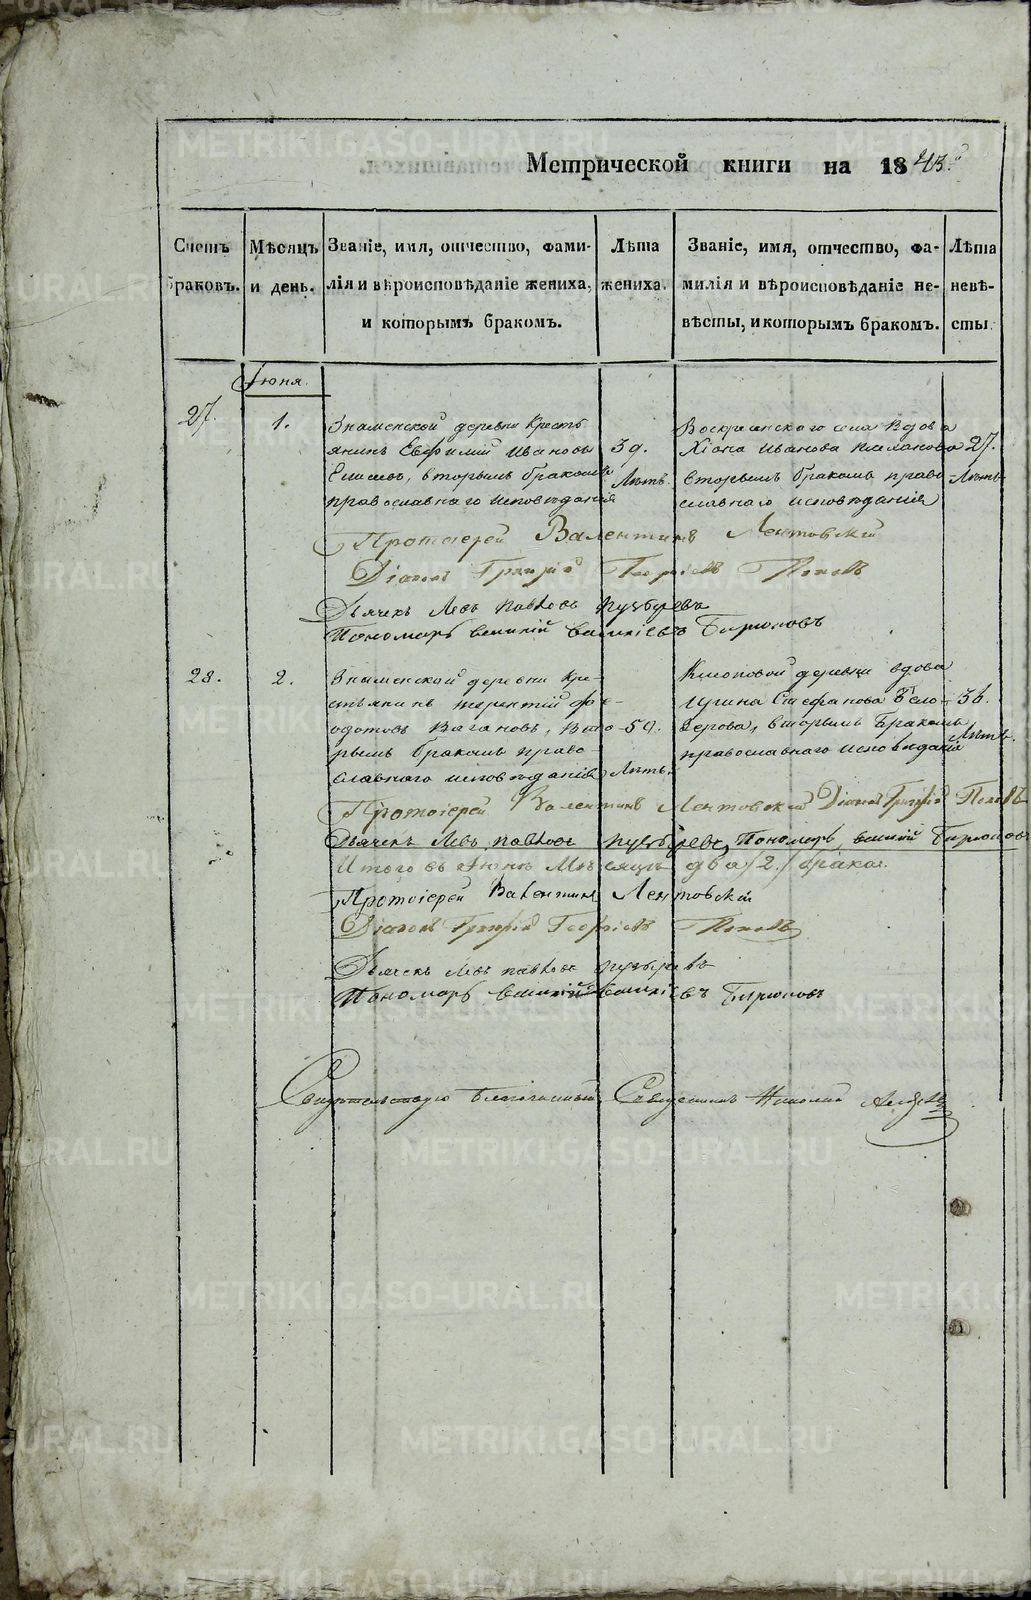 Метрической книги на 1843.
Счетъ браковъ.
Мѣсяцъ и день.
Званіе, имя, отчество, фамилія и вѣроисповѣданіе жениха, и которымъ бракомъ.
Лѣта жениха.
Званіе, имя, отчество, фамилія и вѣроисповѣданіе невѣсты, и которымъ бракомъ.
Лѣта невѣсты.
Іюня.
27.
1.
Знаменской деревни Кресть-
янинъ Евфимій Ивановъ
вторымъ бракомъ
православнаго исповѣданія
39.
Лѣтъ.
Воскресенскаго села вдова
Хіона Иванова
вторымъ бракомъ право-
славнаго исповѣданія
27.
Лѣтъ.
Протоіерей Валентинъ Лентовскій
Діаконъ Григорій Георгіевъ Поповъ
Дьячекъ Левъ Павловъ
Пономарь Василій Василіевъ Бирюковъ
28.
2.
Знаменской деревни Кре-
стьянинъ Терентій Фе-
одотовъ Вагановъ, вто-
рымъ бракомъ право-
славнаго исповѣданія
59.
Лѣтъ.
Клюповой деревни вдова
Ирина Стефанова Бело-
зерова, вторымъ бракомъ
православнаго исповѣданія
36.
Лѣтъ.
Протоіерей Валентинъ Лентовскій Діаконъ Григорій Поповъ
Дьячекъ Левъ Павловъ Пономарь Василій Бирюковъ
Итого въ Іюнѣ Мѣсяцѣ два /2./ брака.
Протоіерей Валентинъ Лентовскій
Діаконъ Григорій Георгіевъ Поповъ
Дьячекъ Левъ Павловъ
Пономарь Василій Василіевъ Бирюковъ
Свидѣтельствую Благочинный Священникъ Николай
METRIKI.GASO-URAL.RU